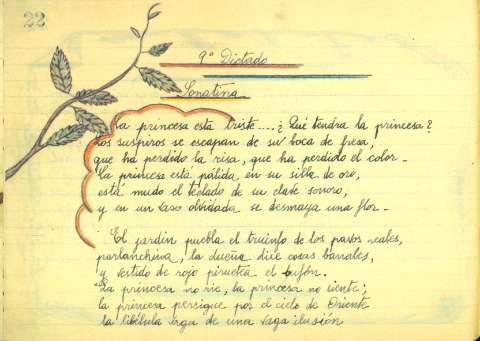 22
9º Dictado
Sonatina
La princesa está triste.... ¿Qué tendrá la princesa?
Los suspiros se escapan de su boca de fresa,
que ha perdido la risa, que ha perdido el color-
La princesa está pálida en su silla de oro,
está mudo el teclado de su clave sonoro,
y en un vaso olvidada se desmaya una flor-
El jardín puebla el triunfo de los pavos reales,
parlanchina, la dueña dice cosas banales,
y vestido de rojo piruetea el bufón.
La princesa no rie, la princesa no siente;
la princesa persigue por el cielo de Oriente
la libélula vaga de una vaga ilusión